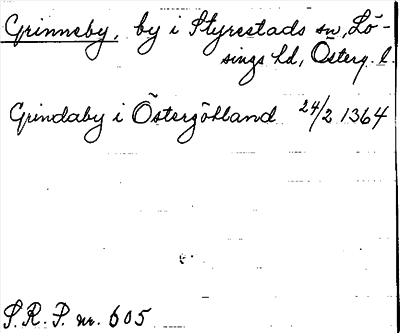 Grinneby, by i Styrestads sn, Lö-
sings hd, Österg. l.
Grindaby i Östergötland 24/2 1364
S.R.P. nr. 605